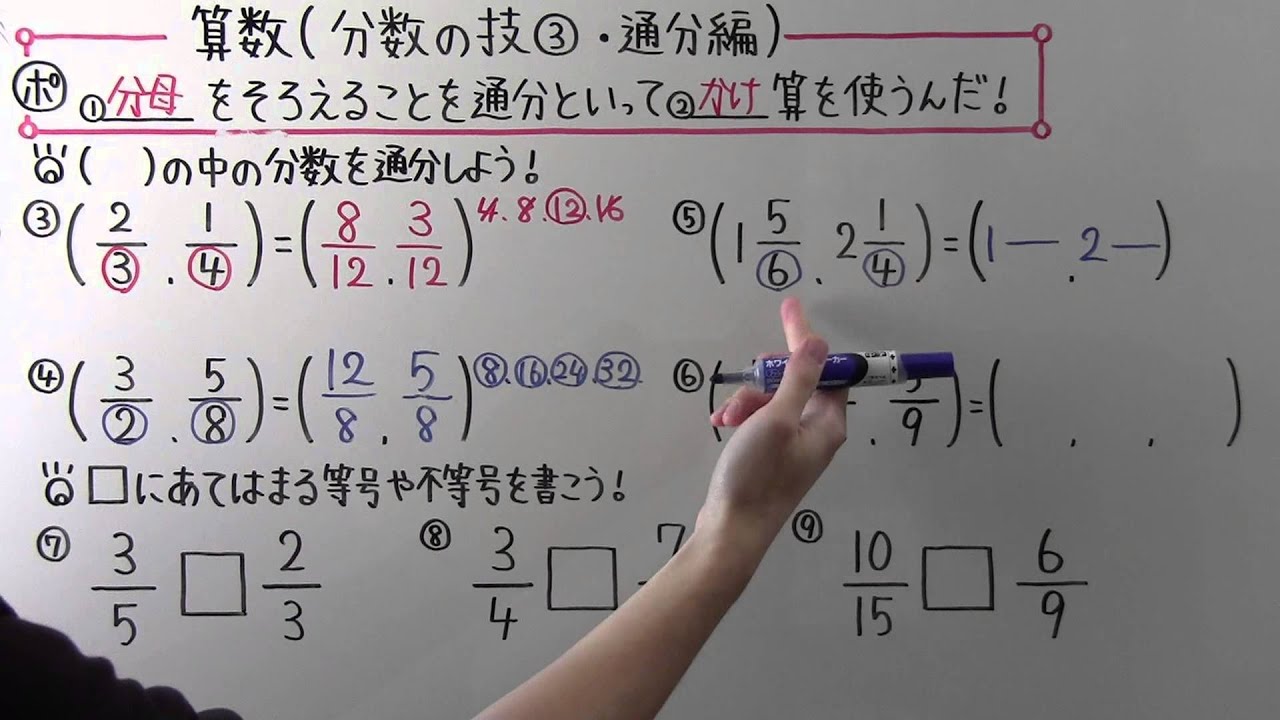 算数(分数の技③・通分編)
ポ ①分母をそろえることを通分といって②かけ算を使うんだ!
( )の中の分数を通分しよう!
③(2/3 . 1/4)=(8/12 . 3/12) 4.8.12.16
④(3/2 . 5/8)=(12/8 . 5/8) 8.16.24.32
⑤(1 5/6 . 2 1/4)=(1— . 2—)
⑥( . 5/9)=( , , )
□にあてはまる等号や不等号を書こう!
⑦ 3/5 □ 2/3
⑧ 3/4 □ 7
⑨ 10/15 □ 6/9